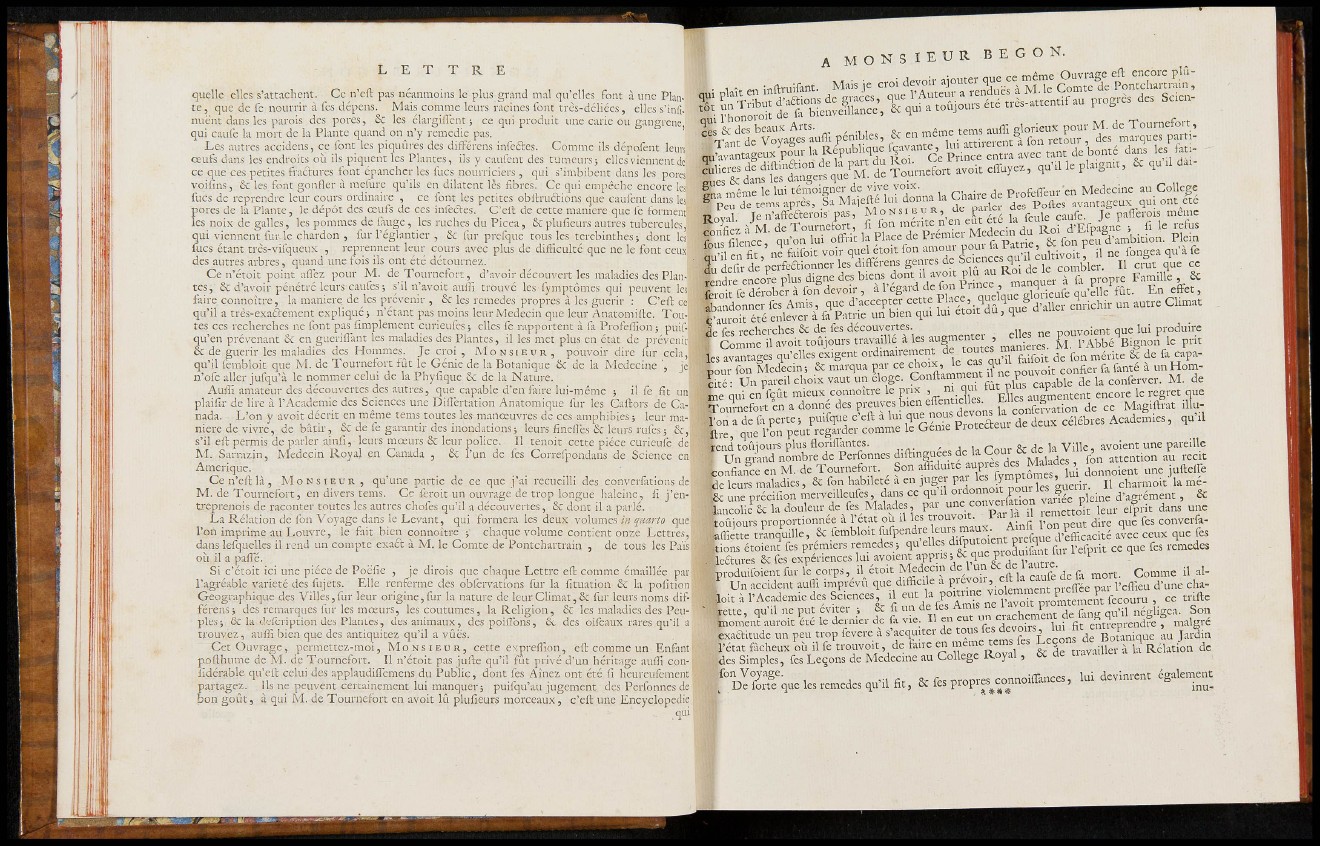 LETTRE
quelle elles s'attachent. Ce n'eſt pas néanmoins le plus grand mal qu'elles font à une Plan-
te, que de ſe nourrir à ſes dépens. Mais comme leurs racines ſont très-déliées, elles s'inſi-
nuënt dans les parois des pores, & les élargiſſent; ce qui produit une carie ou gangrene,
qui cauſe la mort de la Plante quand on n'y remedie pas.
Les autres accidens, ce ſont les piquûres des différens inſectes. Comme ils dépoſent leurs
œufs dans les endroits où ils piquent les Plantes, ils y cauſent des tumeurs; elles viennent de
ce que ces petites fractures font épancher les ſucs nourriciers, qui s'imbibent dans les pores
voiſins, & les font gonfler à meſure qu'ils en dilatent lès fibres. Ce qui empêche encore les
ſucs de reprendre leur cours ordinaire, ce ſont les petites obſtructions que cauſent dans les
pores de la Plante, le dépôt des œufs de ces inſectes. C'eſt de cette maniere que ſe forment
les noix de galles, les pommes de ſauge, les ruches du Picea, & pluſieurs autres tubercules,
qui viennent ſur le chardon, ſur l'églantier, & ſur preſque tous les terebinthes; dont les
ſucs étant très-viſqueux, reprennent leur cours avec plus de difficulté que ne le font ceux
des autres arbres, quand une fois ils ont été détournez.
Ce n'étoit point aſſez pour M. de Tournefort, d'avoir découvert les maladies des Plan-
tes, & d'avoir pénétré leurs cauſes; s'il n'avoit auſſi trouvé les ſymptômes qui peuvent les
faire connoître, la maniere de les prévenir, & les remedes propres à les guerir: C'eſt ce
qu'il a très-exactement expliqué; n'étant pas moins leur Medecin que leur Anatomiſte. Tou-
tes ces recherches ne ſont pas ſimplement curieuſes; elles ſe rapportent à ſa Profeſſion; puiſ-
qu'en prévenant & en gueriſſant les maladies des Plantes, il les met plus en état de prévenir
& de guerir les maladies des Hommes. Je croi, MONSIEUR, pouvoir dire ſur cela,
qu'il ſembloit que M. de Tournefort fût le Génie de la Botanique & de la Medecine, je
n'oſe aller juſqu'à le nommer celui de la Phyſique & de la Nature.
Auſſi amateur des découvertes des autres, que capable d'en faire lui-même; il ſe fit un
plaiſir de lire à l'Academie des Sciences une Diſſertation Anatomique ſur les Caſtors de Ca-
nada. L'on y avoit décrit en même tems toutes les manœuvres de ces amphibies; leur ma-
niere de vivre, de bâtir, & de ſe garantir des inondations; leurs fineſſes & leurs ruſes; &,
s'il eſt permis de parler ainſi, leurs mœurs & leur police. Il tenoit cette piéce curieuſe de
M. Sarrazin, Medecin Royal en Canada, & l'un de ſes Correſpondans de Science en
Amerique.
Ce n'eſt là, MONSIEUR, qu'une partie de ce que j'ai recueilli des converſations de
M. de Tournefort, en divers tems. Ce ſeroit un ouvrage de trop longue haleine, ſi j'en-
treprenois de raconter toutes les autres choſes qu'il a découvertes, & dont il a parlé.
La Rélation de ſon Voyage dans le Levant, qui formera les deux volumes in quarto que
l'on imprime au Louvre, le fait bien connoître; chaque volume contient onze Lettres,
dans leſquelles il rend un compte exact à M. le Comte de Pontchartrain, de tous les Païs
où il a paſſé.
Si c'étoit ici une piéce de Poëſie, je dirois que chaque Lettre eſt comme émaillée par
l'agréable varieté des ſujets. Elle renferme des obſervations ſur la ſituation & la poſition
Geographique des Villes, ſur leur origine, ſur la nature de leur Climat, & ſur leurs noms dif-
férens; des remarques ſur les mœurs, les coutumes, la Religion, & les maladies des Peu-
ples; & la deſcription des Plantes, des animaux, des poiſſons, & des oiſeaux rares qu'il a
trouvez, auſſi bien que des antiquitez qu'il a vûës.
Cet Ouvrage, permettez-moi, MONSIEUR, cette expreſſion, eſt comme un Enfant
poſthume de M. de Tournefort. Il n'étoit pas juſte qu'il fût privé d'un héritage auſſi con-
ſidérable qu'eſt celui des applaudiſſemens du Public, dont ſes Aînez ont été ſi heureuſement
partagez. Ils ne peuvent certainement lui manquer; puiſqu'au jugement des Perſonnes de
bon goût, à qui M. de Tournefort en avoit lû pluſieurs morceaux, c'eſt une Encyclopedie
qui
A MONSIEUR BEGON.
qui plaît en inſtruiſant. Mais je croi devoir ajouter que ce même Ouvrage eſt encore plû-
tôt un Tribut d'actions de graces, que l'Auteur a renduës à M. le Comte de Pontchartrain,
qui l'honoroit de ſa bienveillance, & qui a toûjours été très-attentif au progrès des Scien-
ces & des beaux Arts.
Tant de Voyages auſſi pénibles, & en même tems auſſi glorieux pour M. de Tournefort,
qu'avantageux pour la République ſçavante, lui attirerent à ſon retour, des marques parti-
culieres de diſtinction de la part du Roi. Ce Prince entra avec tant de bonté dans les fati-
gues & dans les dangers que M. de Tournefort avoit eſſuyez, qu'il le plaignit, & qu'il dai-
gna même le lui témoigner de vive voix.
Peu de tems après, Sa Majeſté lui donna la Chaire de Profeſſeur en Medecine au College
Royal. Je n'affecterois pas, MONSIEUR, de parler des Poſtes avantageux qui ont été
confiez à M. de Tournefort, ſi ſon mérite n'en eût été la ſeule cauſe. Je paſſerois même
ſous ſilence, qu'on lui offrit la Place de Prémier Medecin du Roi d'Eſpagne; ſi le refus
qu'il en fit, ne faiſoit voir quel étoit ſon amour pour ſa Patrie, & ſon peu d'ambition. Plein
du deſir de perfectionner les différens genres de Sciences qu'il cultivoit, il ne ſongea qu'à ſe
rendre encore plus digne des biens dont il avoit plû au Roi de le combler. Il crut que ce
ſeroit ſe dérober à ſon devoir, à l'égard de ſon Prince, manquer à ſa propre Famille, &
abandonner ſes Amis, que d'accepter cette Place, quelque glorieuſe qu'elle fût. En effet,
ç'auroit été enlever à ſa Patrie un bien qui lui étoit dû, que d'aller enrichir un autre Climat
de ſes recherches & de ſes découvertes.
Comme il avoit toûjours travaillé à les augmenter, elles ne pouvoient que lui produire
les avantages qu'elles exigent ordinairement de toutes manieres. M. l'Abbé Bignon le prit
pour ſon Medecin; & marqua par ce choix, le cas qu'il faiſoit de ſon mérite & de ſa capa-
cité: Un pareil choix vaut un éloge. Conſtamment il ne pouvoit confier ſa ſanté à un Hom-
me qui en ſçût mieux connoître le prix, ni qui fût plus capable de la conſerver. M. de
Tournefort en a donné des preuves bien eſſentielles. Elles augmentent encore le regret que
l'on a de ſa perte; puiſque c'eſt à lui que nous devons la conſervation de ce Magiſtrat illu-
ſtre, que l'on peut regarder comme le Génie Protecteur de deux célébres Academies, qu'il
rend toûjours plus floriſſantes.
Un grand nombre de Perſonnes diſtinguées de la Cour & de la Ville, avoient une pareille
confiance en M. de Tournefort. Son aſſiduité auprès des Malades, ſon attention au recit
de leurs maladies, & ſon habileté à en juger par les ſymptômes, lui donnoient une juſteſſe
& une préciſion merveilleuſes, dans ce qu'il ordonnoit pour les guerir. Il charmoit la mé-
lancolie & la douleur de ſes Malades, par une converſation variée pleine d'agrément, &
toûjours proportionnée à l'état où il les trouvoit. Par là il remettoit leur eſprit dans une
aſſiette tranquille, & ſembloit ſuſpendre leurs maux. Ainſi l'on peut dire que ſes converſa-
tions étoient ſes prémiers remedes; qu'elles diſputoient preſque d'efficacité avec ceux que ſes
lectures & ſes expériences lui avoient appris; & que produiſant ſur l'eſprit ce que ſes remedes
produiſoient ſur le corps, il étoit Medecin de l'un & de l'autre.
Un accident auſſi imprévû que difficile à prévoir, eſt la cauſe de ſa mort. Comme il al-
loit à l'Academie des Sciences, il eut la poitrine violemment preſſée par l'eſſieu d'une cha-
rette, qu'il ne put éviter; & ſi un de ſes Amis ne l'avoit promtement ſecouru, ce triſte
moment auroit été le dernier de ſa vie. Il en eut un crachement de ſang qu'il négligea. Son
exactitude un peu trop ſevere à s'acquiter de tous ſes devoirs, lui fit entreprendre, malgré
l'état fâcheux où il ſe trouvoit, de faire en même tems ſes Leçons de Botanique au Jardin
des Simples, ſes Leçons de Medecine au College Royal, & de travailler à la Rélation de
ſon Voyage.
De ſorte que les remedes qu'il fit, & ſes propres connoiſſances, lui devinrent également
**** inu-